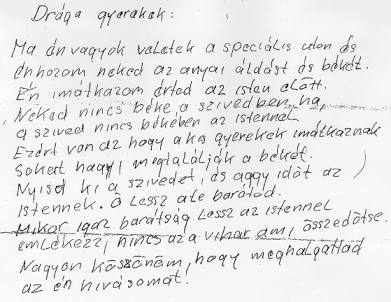 Drága gyerekek:
Ma én vagyok veletek a speciális uton és
én hozom neked az anyai áldást és békét.
Én imátkozom érted az isten elött.
Neked nincs béke a szivedben, ha,
a szived nincs békében az istennel
Ezért van az hogy a kis gyerekek imátkoznak
Sokat hagyj megtalálják a békét.
Nyisd ki a szivedet, és aggy időt az
Istennek. ö Lessz a te barátod.
Mikor igaz barátság Lessz az istennel
emlékezz, nincs az a vihar ami, összedötse.
Nagyon köszönöm, hogy meghalgattad
az én hivásomat.